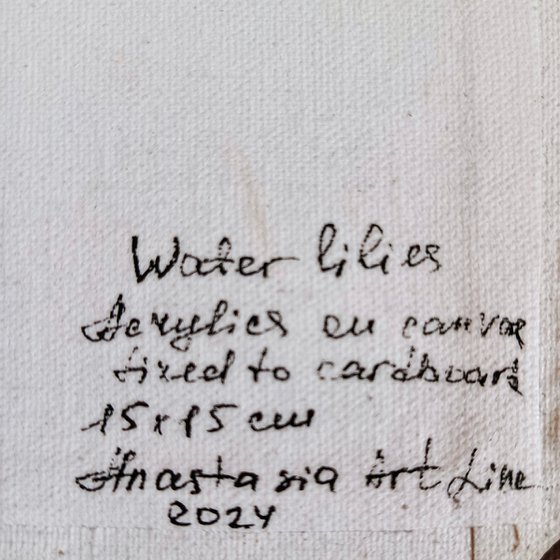 Water lilies
Acrylics on canvas
fixed to cardboard
15x15 cm
Anastasia Art Line
2024